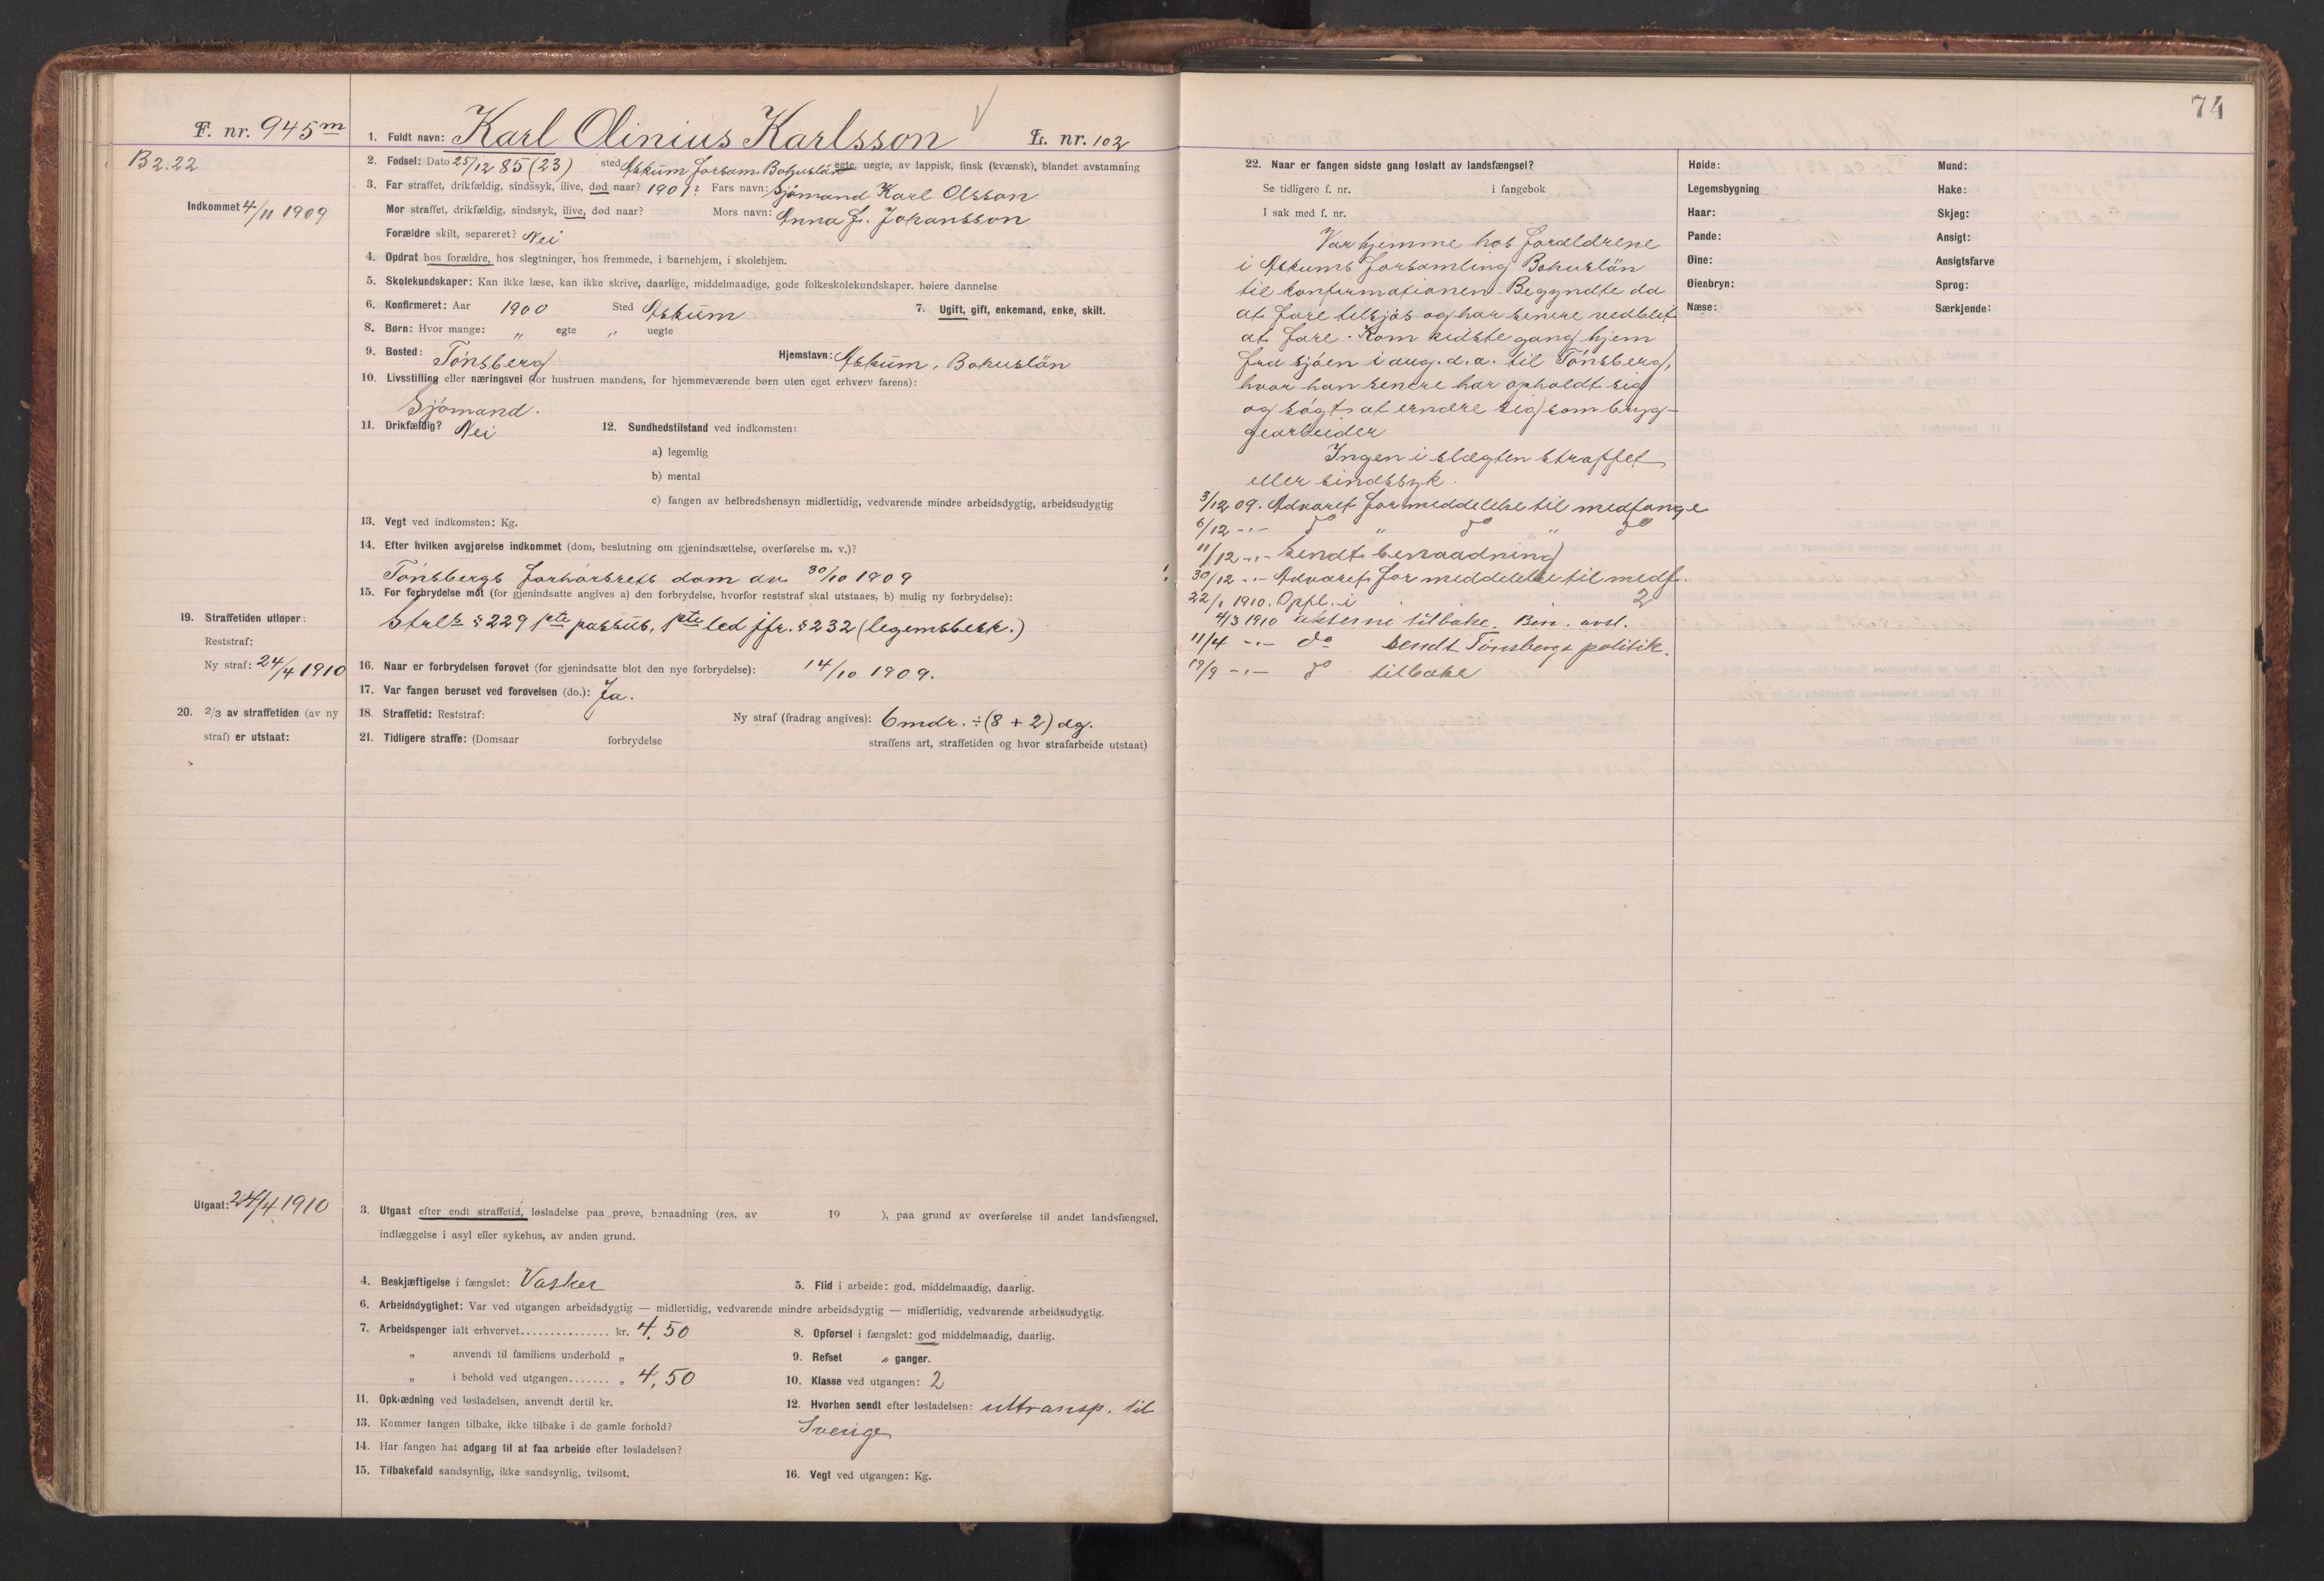 F. nr. 945 m
B 2.22
Indkommet 4/11 1909
1. Fuldt navn: Karl Olinius Karlsson L. nr. 102
2. Fødsel: Dato 25/12 85 (23) sted Askum Forsam. Bohuslän egte, uegte, av lappisk, finsk (kvænsk), blandet avstamning
3. Far straffet, drikfældig, sindssyk, ilive, død naar? 1901? Fars navn: Sjömand Karl Olsson
Mor straffet, drikfældig, sindssyk, ilive, død naar? Mors navn: Anna L. Johansson
Forældre skilt, separeret? Nei
4. Opdrat hos forældre, hos slegtninger, hos fremmede, i barnehjem, i skolehjem.
5. Skolekundskaper: Kan ikke læse, kan ikke skrive, daarlige, middelmaadige, gode folkeskolekundskaper, høiere dannelse
6. Konfirmeret: Aar 1900 Sted Askum 7. Ugift, gift, enkemand, enke, skilt.
8. Børn: Hvor mange: „ egte „ uegte
9. Bosted: Tönsberg Hjemstavn: Askum, Bohuslän
10. Livsstilling eller næringsvei (for hustruen mandens, for hjemmeværende børn uten eget erhverv farens):
Sjömand.
11. Drikfældig? Nei 12. Sundhedstilstand ved indkomsten:
a) legemlig
b) mental
c) fangen av helbredshensyn midlertidig, vedvarende mindre arbeidsdygtig, arbeidsudygtig
13. Vegt ved indkomsten: Kg.
14. Efter hvilken avgjørelse indkommet (dom, beslutning om gjenindsættelse, overførelse m. v.)?
Tönsbergs forhörsrets dom av 30/10 1909
15. For forbrydelse mot (for gjenindsatte angives a) den forbrydelse, hvorfor reststraf skal utstaaes, b) mulig ny forbrydelse):
Strl's § 229 1ste passus, 1ste led jfr. § 232 (legemsbesk.)
19. Straffetiden utløper:
Reststraf:
Ny straf: 24/4 1910
16. Naar er forbrydelsen forøvet (for gjenindsatte blot den nye forbrydelse): 14/10 1909.
17. Var fangen beruset ved forøvelsen (do.): Ja.
20. 2/3 av straffetiden (av ny
straf) er utstaat:
18. Straffetid: Reststraf: Ny straf (fradrag angives): 6 mdr. ÷ (8 + 2) dg.
21. Tidligere straffe: (Domsaar forbrydelse straffens art, straffetiden og hvor strafarbeide utstaat)
Utgaat: 24/4 1910
3. Utgaat efter endt straffetid, løsladelse paa prøve, benaadning (res. av 19 ), paa grund av overførelse til andet landsfængsel,
indlæggelse i asyl eller sykehus, av anden grund.
4. Beskjæftigelse i fængslet: Vasker 5. Flid i arbeide: god, middelmaadig, daarlig.
6. Arbeidsdygtighet: Var ved utgangen arbeidsdygtig — midlertidig, vedvarende mindre arbeidsdygtig — midlertidig, vedvarende arbeidsudygtig.
7. Arbeidspenger ialt erhvervet............... kr. 4,50 8. Opførsel i fængslet: god middelmaadig, daarlig.
„ anvendt til familiens underhold „ 9. Refset „ ganger.
„ i behold ved utgangen....... „ 4,50 10. Klasse ved utgangen: 2
11. Opklædning ved løsladelsen, anvendt dertil kr. 12. Hvorhen sendt efter løsladelsen: uttransp. til
13. Kommer fangen tilbake, ikke tilbake i de gamle forhold? Sverige
14. Har fangen hat adgang til at faa arbeide efter løsladelsen?
15. Tilbakefald sandsynlig, ikke sandsynlig, tvilsomt. 16. Vegt ved utgangen: Kg.
74
22. Naar er fangen sidste gang løslatt av landsfængsel?
Se tidligere f. nr. i fangebok
I sak med f. nr.
Var hjemme hos foraldrene
i Askums forsamling Bohuslän
til konfirmationen. Begyndte da
at fare tilsjös og har senere vedblit
at fare. Kom sidste gang hjem
fra sjöen i aug. d.a. til Tönsberg,
hvor han senere har opholdt sig
og sögt at ernære sig som bryg-
gearbeider
Ingen i slægten straffet
eller sindssyk.
3/12 09. Advaret for meddelelse til medfange
6/12 -„- do „ do „ do
11/12 -„- Sendt benaadning
30/12 -„- Advaret for meddelelse til medf.
22/1 1910. Oppl. i 2
4/3 1910 tilbake. Ben. avsl.
11/4 -„- do sendt Tönsbergs politik.
19/9 -„- do tilbake
Høide:
Legemsbygning
Haar:
Pande:
Øine:
Øienbryn:
Næse:
Mund:
Hake:
Skjeg:
Ansigt:
Ansigtsfarve
Sprog:
Særkjende: